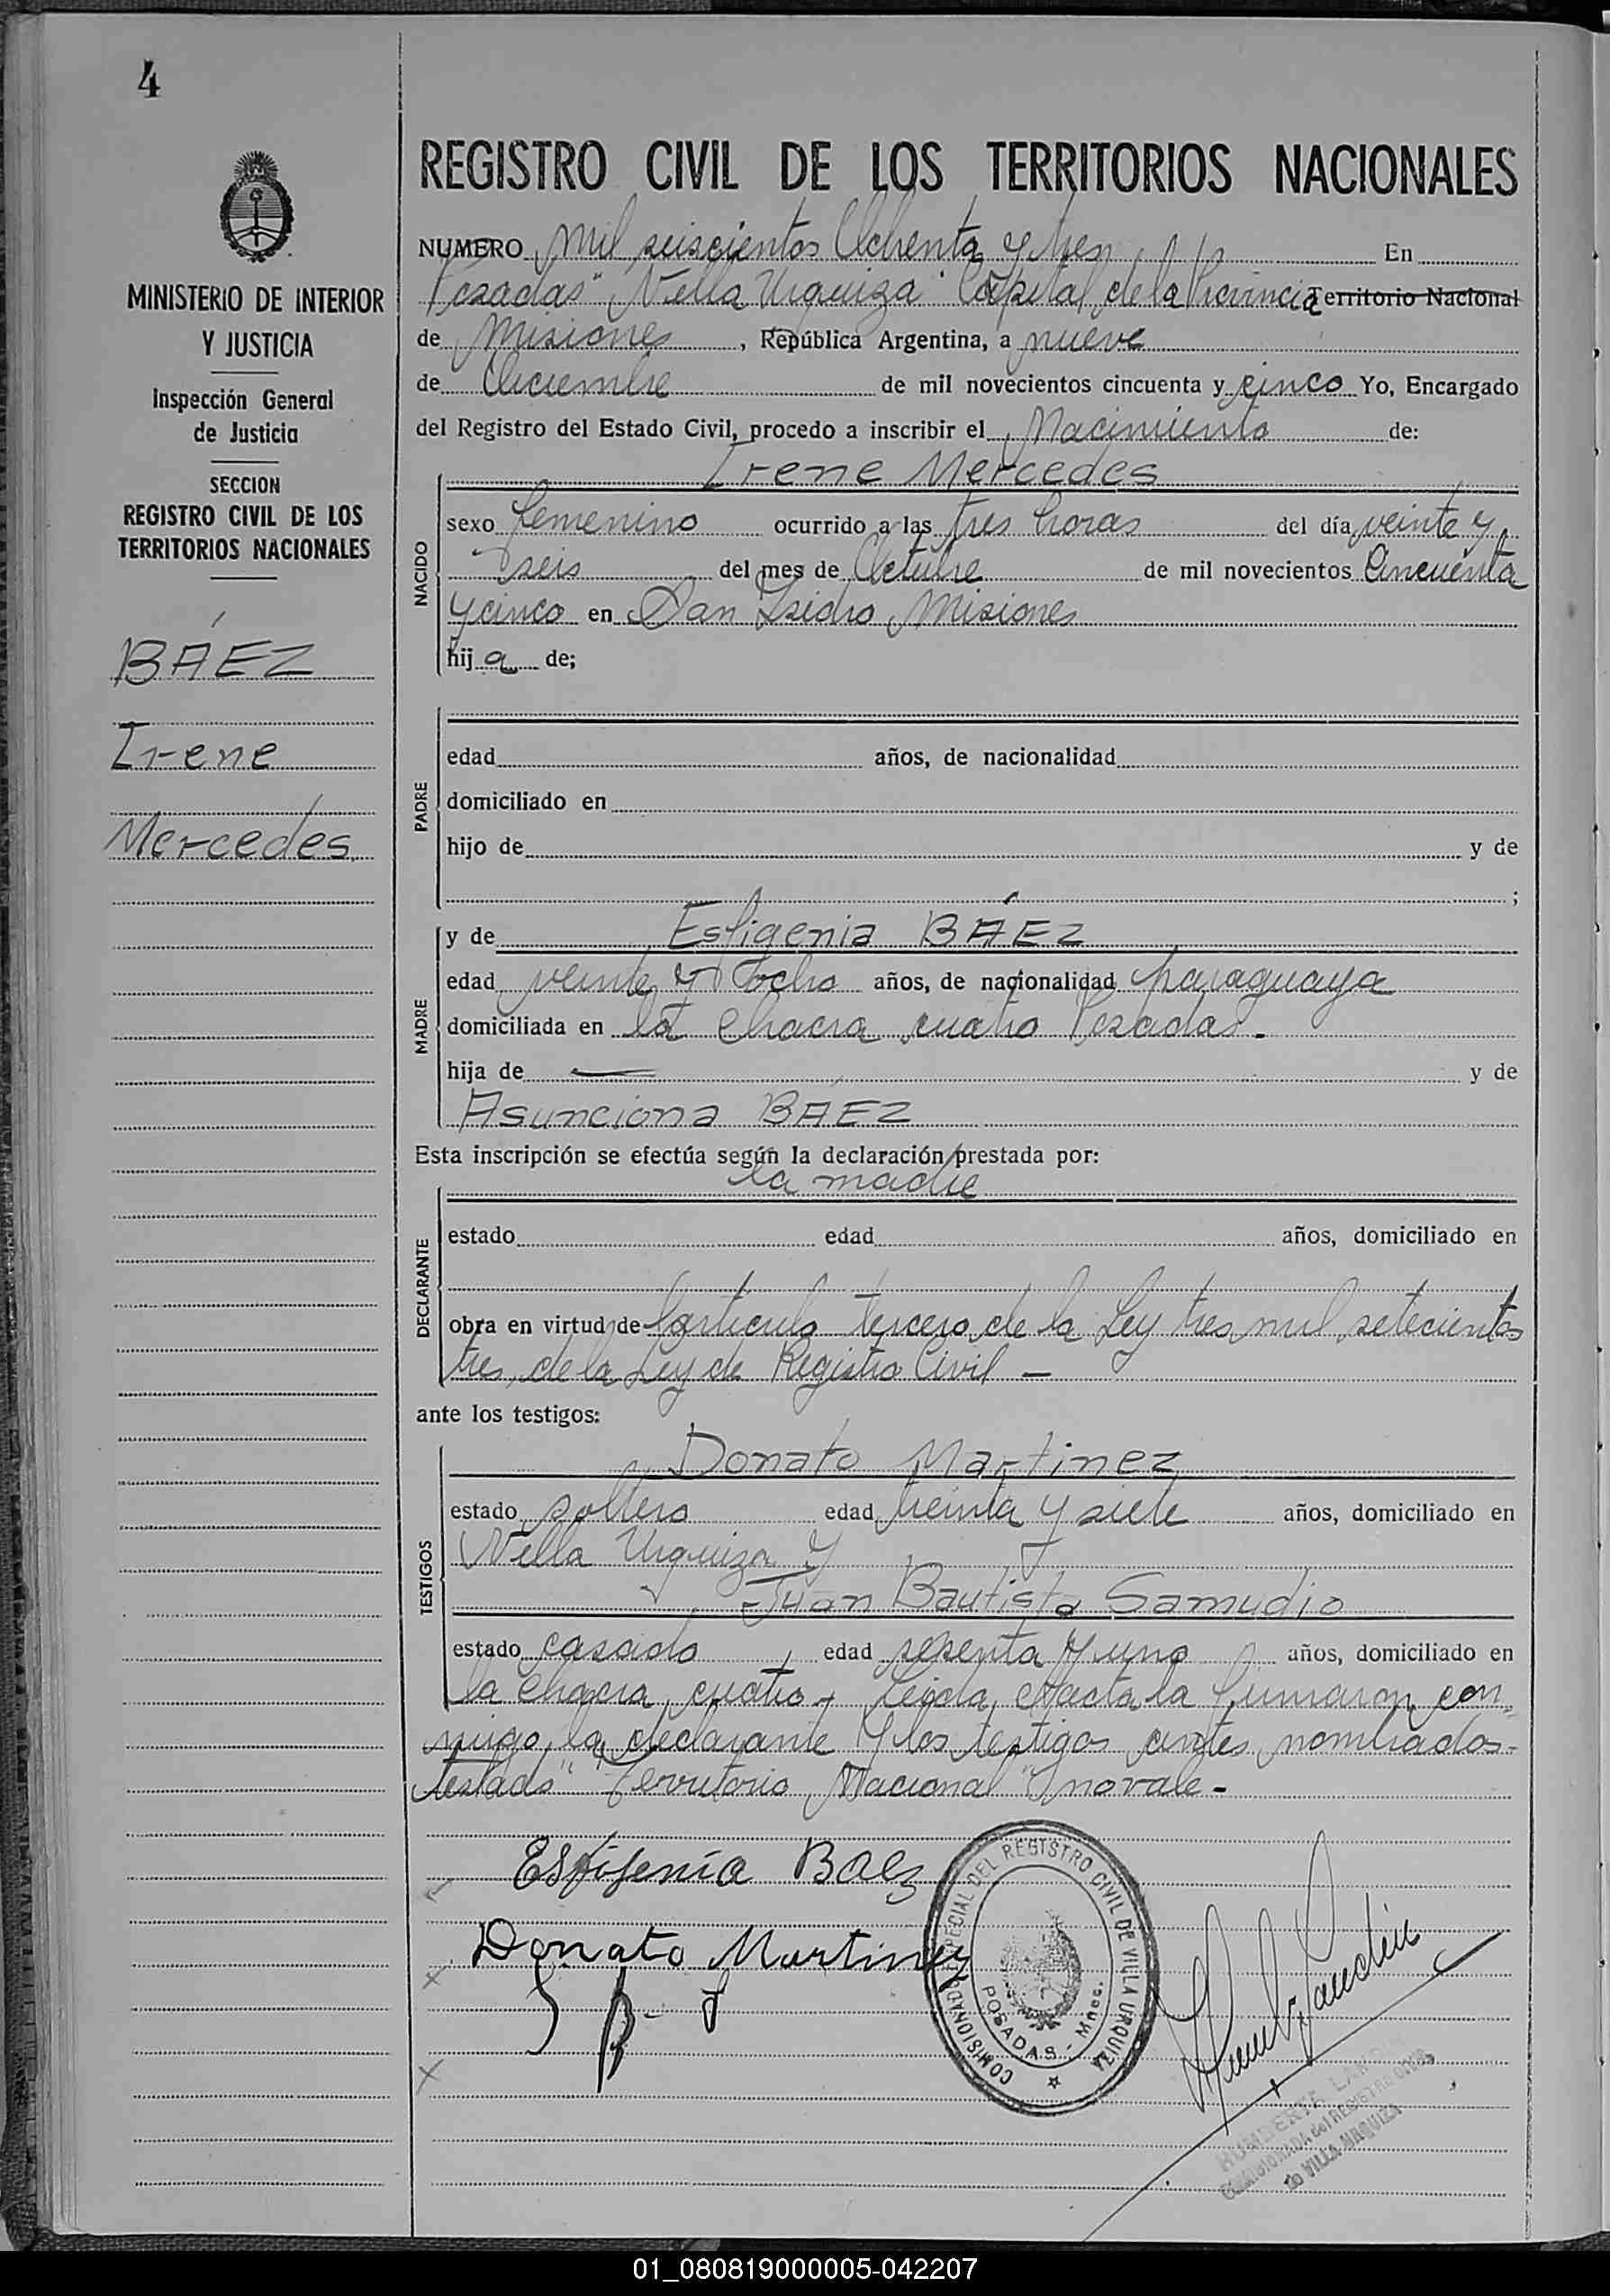 4
MINISTERIO DE INTERIOR
Y JUSTICIA
Inspección General
de Justicia
SECCION
REGISTRO CIVIL DE LOS
TERRITORIOS NACIONALES
BÁEZ
Irene
Mercedes
REGISTRO CIVIL DE LOS TERRITORIOS NACIONALES
NUMERO Mil seiscientos Ochenta y tres En
Posadas "Villa Urquiza" Capital de la Provincia Territorio Nacional
de Misiones, República Argentina, a nueve
de Diciembre de mil novecientos cincuenta y cinco Yo, Encargado
del Registro del Estado Civil, procedo a inscribir el Nacimiento de:
Irene Mercedes
NACIDO
sexo femenino ocurrido a las tres horas del día veinte y
seis del mes de Octubre de mil novecientos Cincuenta
y cinco en San Isidro Misiones
hij a de;
PADRE
edad años, de nacionalidad
domiciliado en
hijo de y de
;
MADRE
y de Esfigenia BÁEZ
edad veinte y ocho años, de nacionalidad paraguaya
domiciliada en la chacra cuatro Posadas.
hija de — y de
Asunciona BAEZ
Esta inscripción se efectúa según la declaración prestada por:
la madre
DECLARANTE
estado edad años, domiciliado en
obra en virtud de l'articulo tercero de la Ley tres mil setecientos
tres, de la Ley de Registro Civil —
ante los testigos:
TESTIGOS
Donato Martinez
estado soltero edad treinta y siete años, domiciliado en
Villa Urquiza y
Juan Bautista Samudio
estado casado, edad sesenta y uno años, domiciliado en
la chacra, cuatro - Leida, el acta la firmaron con
migo, la declarante y los testigos antes nombrados-
testado "Territorio Nacional" no vale-
Esfigenia Baez
Donato Martinez
J B. S
COMISIONADO ESPECIAL DEL REGISTRO CIVIL DE VILLA URQUIZA
POSADAS - Mnes.
COMISIONADA del REGISTRO CIVIL
de VILLA URQUIZA
01_080819000005-042207